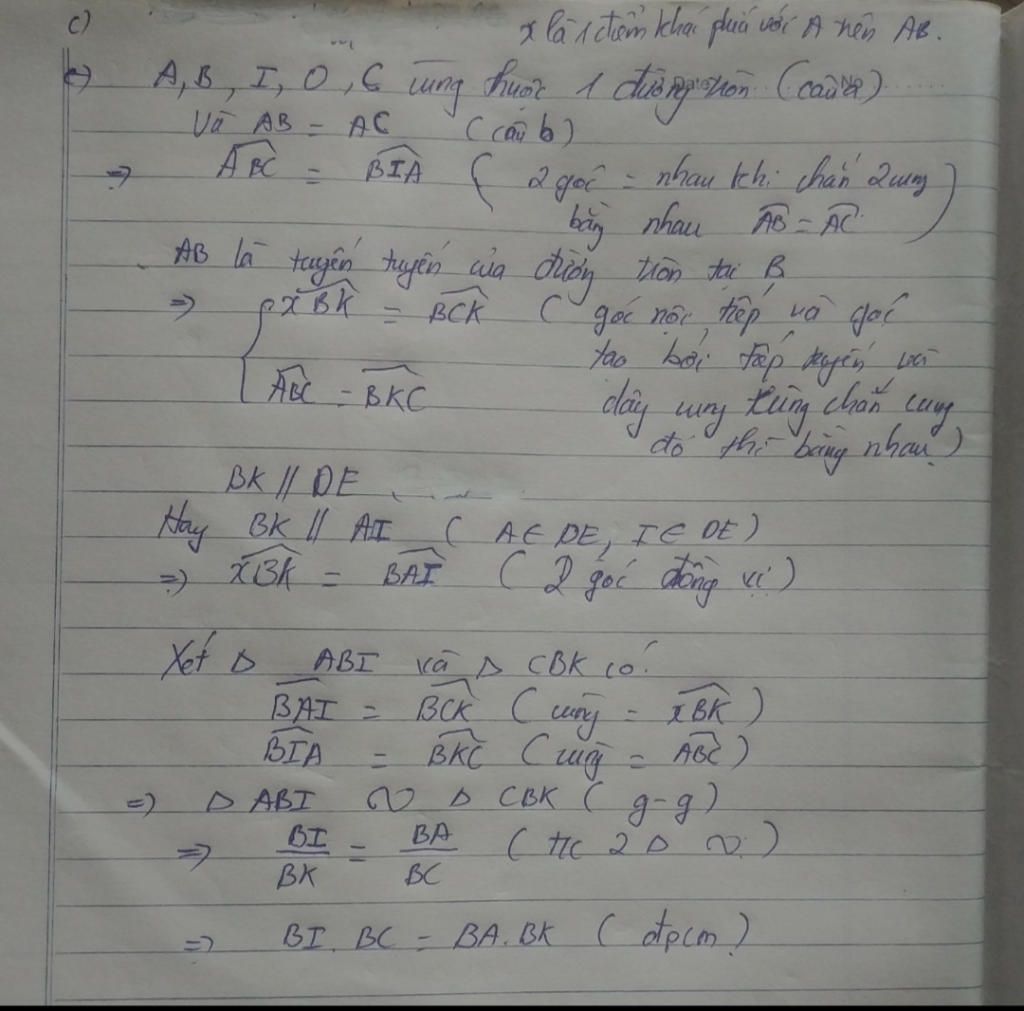 c) x là 1 điểm khác phía với A trên AB.
c) A, B, I, O, C cùng thuộc 1 đường tròn (câu a)
Và AB = AC (câu b)
=> \widehat{ABC} = \widehat{BIA} ( 2 góc = nhau khi chắn 2 cung
bằng nhau \widehat{AB} = \widehat{AC} )
AB là tuyến tuyến của đường tròn tại B
=> { \widehat{xBK} = \widehat{BCK} ( góc nội tiếp và góc
tạo bởi tiếp tuyến và
\widehat{ABC} = \widehat{BKC} dây cung cùng chắn cung
đó thì bằng nhau )
BK // DE
Hay BK // AI ( A ∈ DE, I ∈ DE )
=> \widehat{xBK} = \widehat{BAI} ( 2 góc đồng vị )
Xét Δ ABI và Δ CBK có:
\widehat{BAI} = \widehat{BCK} ( cùng = \widehat{xBK} )
\widehat{BIA} = \widehat{BKC} ( cùng = \widehat{ABC} )
=> Δ ABI ∽ Δ CBK ( g-g )
=> BI/BK = BA/BC ( t/c 2 Δ ∽ )
=> BI . BC = BA . BK ( đpcm )